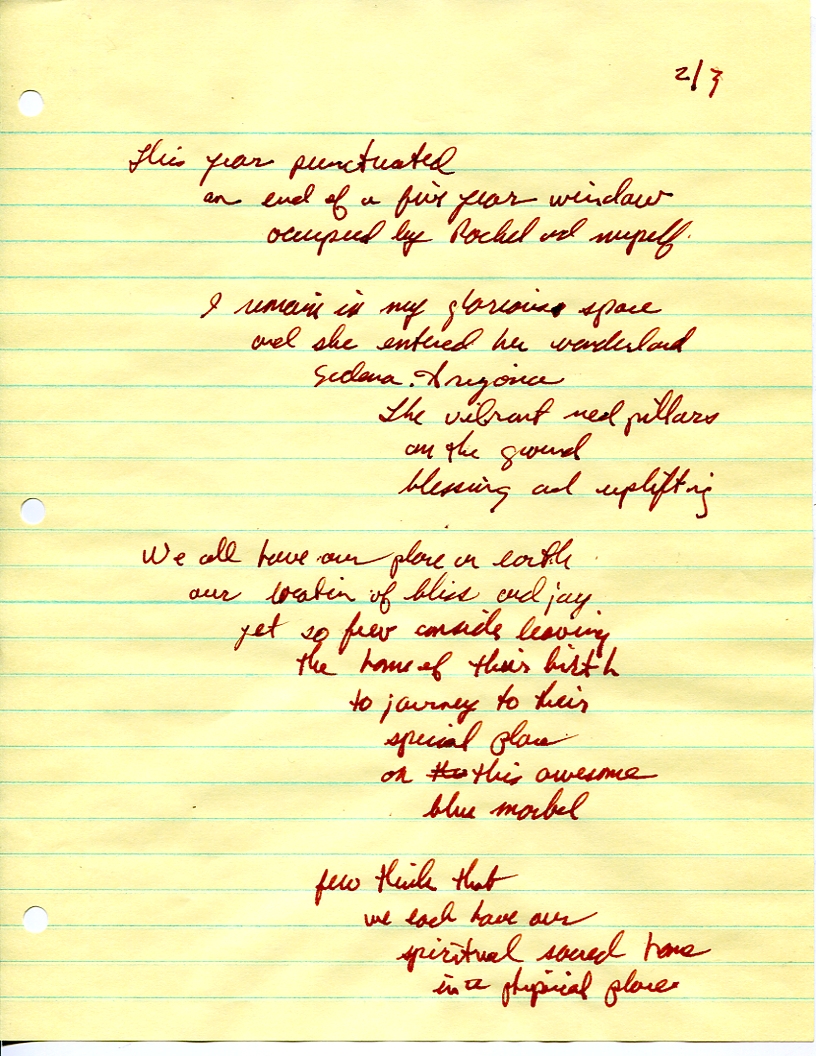 2/3
This year punctuated
an end of a five year window
occupied by Rachel and myself.
I remain in my glorious space
and she entered her wonderland
Sedona. Arizona
The vibrant red pillars
on the ground
blessing and uplifting
We all have our place on earth
our location of bliss and joy
yet so few consider leaving
the home of their birth
to journey to their
special place
on this awesome
blue marbel
few think that
we each have our
spiritual sacred home
in a physical place